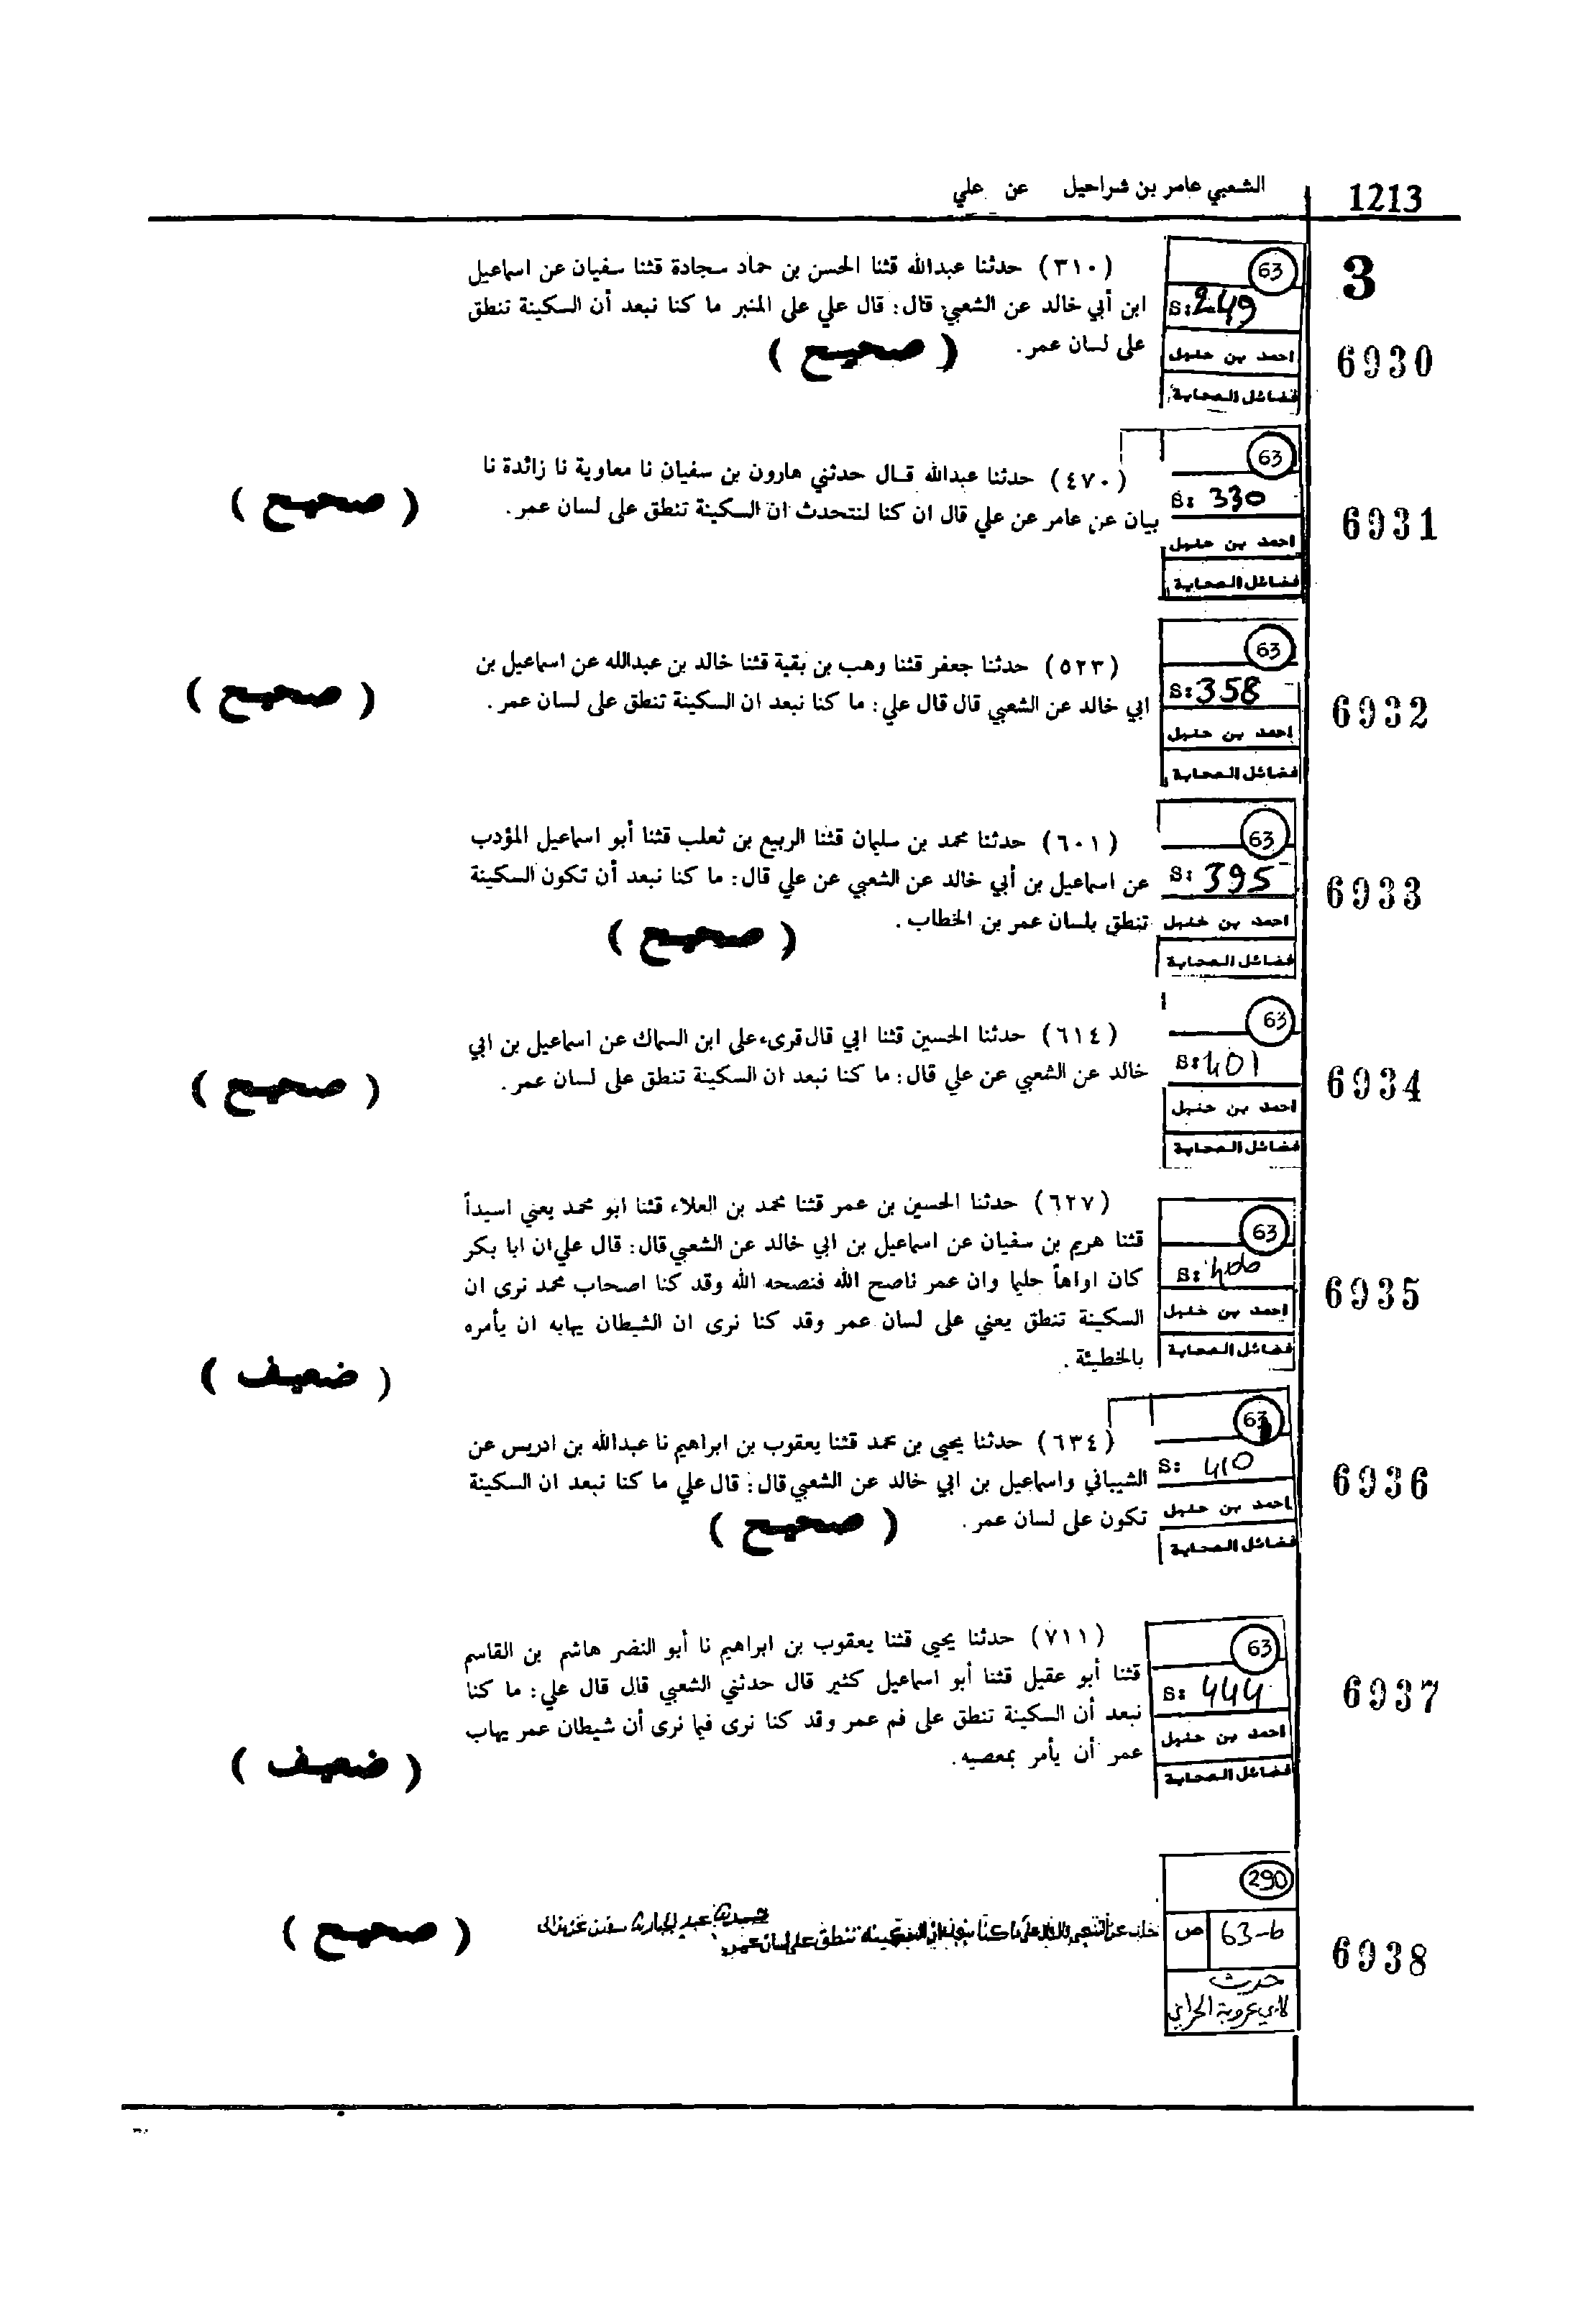 1213 الشعبي عامر بن شراحيل عن علي
3
63
S: 249
احمد بن حنبل
فضائل الصحابة
6930
(٣١٠) حدثنا عبدالله قثنا الحسن بن حماد سجادة قثنا سفيان عن اسماعيل
ابن أبي خالد عن الشعبي قال: قال علي على المنبر ما كنا نبعد أن السكينة تنطق
على لسان عمر.
( صحيح )
63
S: 330
احمد بن حنبل
فضائل الصحابة
6931
(٤٧٠) حدثنا عبدالله قال حدثني هارون بن سفيان نا معاوية نا زائدة نا
بيان عن عامر عن علي قال ان كنا لنتحدث ان السكينة تنطق على لسان عمر.
( صحيح )
63
S: 358
احمد بن حنبل
فضائل الصحابة
6932
(٥٢٣) حدثنا جعفر قثنا وهب بن بقية قثنا خالد بن عبدالله عن اسماعيل بن
ابي خالد عن الشعبي قال قال علي: ما كنا نبعد ان السكينة تنطق على لسان عمر.
( صحيح )
63
S: 395
احمد بن حنبل
فضائل الصحابة
6933
(٦٠١) حدثنا محمد بن سليمان قثنا الربيع بن ثعلب قثنا أبو اسماعيل المؤدب
عن اسماعيل بن أبي خالد عن الشعبي عن علي قال: ما كنا نبعد أن تكون السكينة
تنطق بلسان عمر بن الخطاب.
( صحيح )
63
S: 401
احمد بن حنبل
فضائل الصحابة
6934
(٦١٤) حدثنا الحسين قثنا ابي قال قرىء على ابن السماك عن اسماعيل بن ابي
خالد عن الشعبي عن علي قال: ما كنا نبعد ان السكينة تنطق على لسان عمر.
( صحيح )
63
S: 400
احمد بن حنبل
فضائل الصحابة
6935
(٦٢٧) حدثنا الحسين بن عمر قثنا محمد بن العلاء قثنا ابو محمد يعني اسيداً
قثنا هريم بن سفيان عن اسماعيل بن ابي خالد عن الشعبي قال: قال علي ان ابا بكر
كان اواهاً حليما وان عمر ناصح الله فنصحه الله وقد كنا اصحاب محمد نرى ان
السكينة تنطق يعني على لسان عمر وقد كنا نرى ان الشيطان يهابه ان يأمره
بالخطيئة.
( ضعيف )
63
S: 410
احمد بن حنبل
فضائل الصحابة
6936
(٦٣٤) حدثنا يحيى بن محمد قثنا يعقوب بن ابراهيم نا عبدالله بن ادريس عن
الشيباني واسماعيل بن ابي خالد عن الشعبي قال: قال علي ما كنا نبعد ان السكينة
تكون على لسان عمر.
( صحيح )
63
S: 444
احمد بن حنبل
فضائل الصحابة
6937
(٧١١) حدثنا يحيى قثنا يعقوب بن ابراهيم نا أبو النضر هاشم بن القاسم
قثنا أبو عقيل قثنا أبو اسماعيل كثير قال حدثني الشعبي قال قال علي: ما كنا
نبعد أن السكينة تنطق على فم عمر وقد كنا نرى فيما نرى أن شيطان عمر يهاب
عمر أن يأمر بمعصيه.
( ضعيف )
290
ص 63-b
حديث
لابي عروبة الحراني
6938
حدثنا عبد الجبار ثنا سفين عن
تنطق على لسان عمر.
( صحيح )